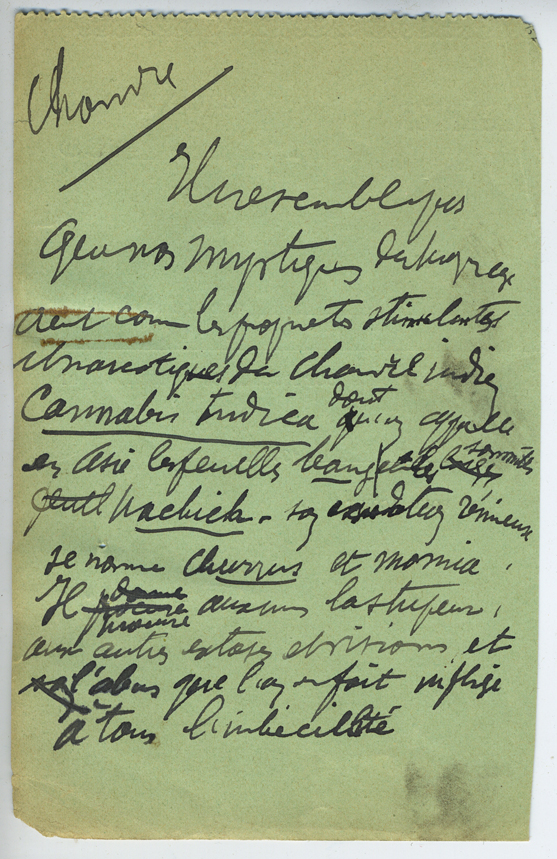 Chanvre
Il ne semble pas
que nos mystiques du moyen age
aient connu les propriétés stimulantes
et narcotiques du chanvre indien
Cannabis Indica dont qu'on appelle
en Asie les feuilles bang et les sommités
hachich - son exsudation résineux
se nomme churrus et momia.
Il donne procure aux uns la stupeur,
aux autres extases et visions et
l'abus que l'on en fait inflige
à tous l'imbécillité